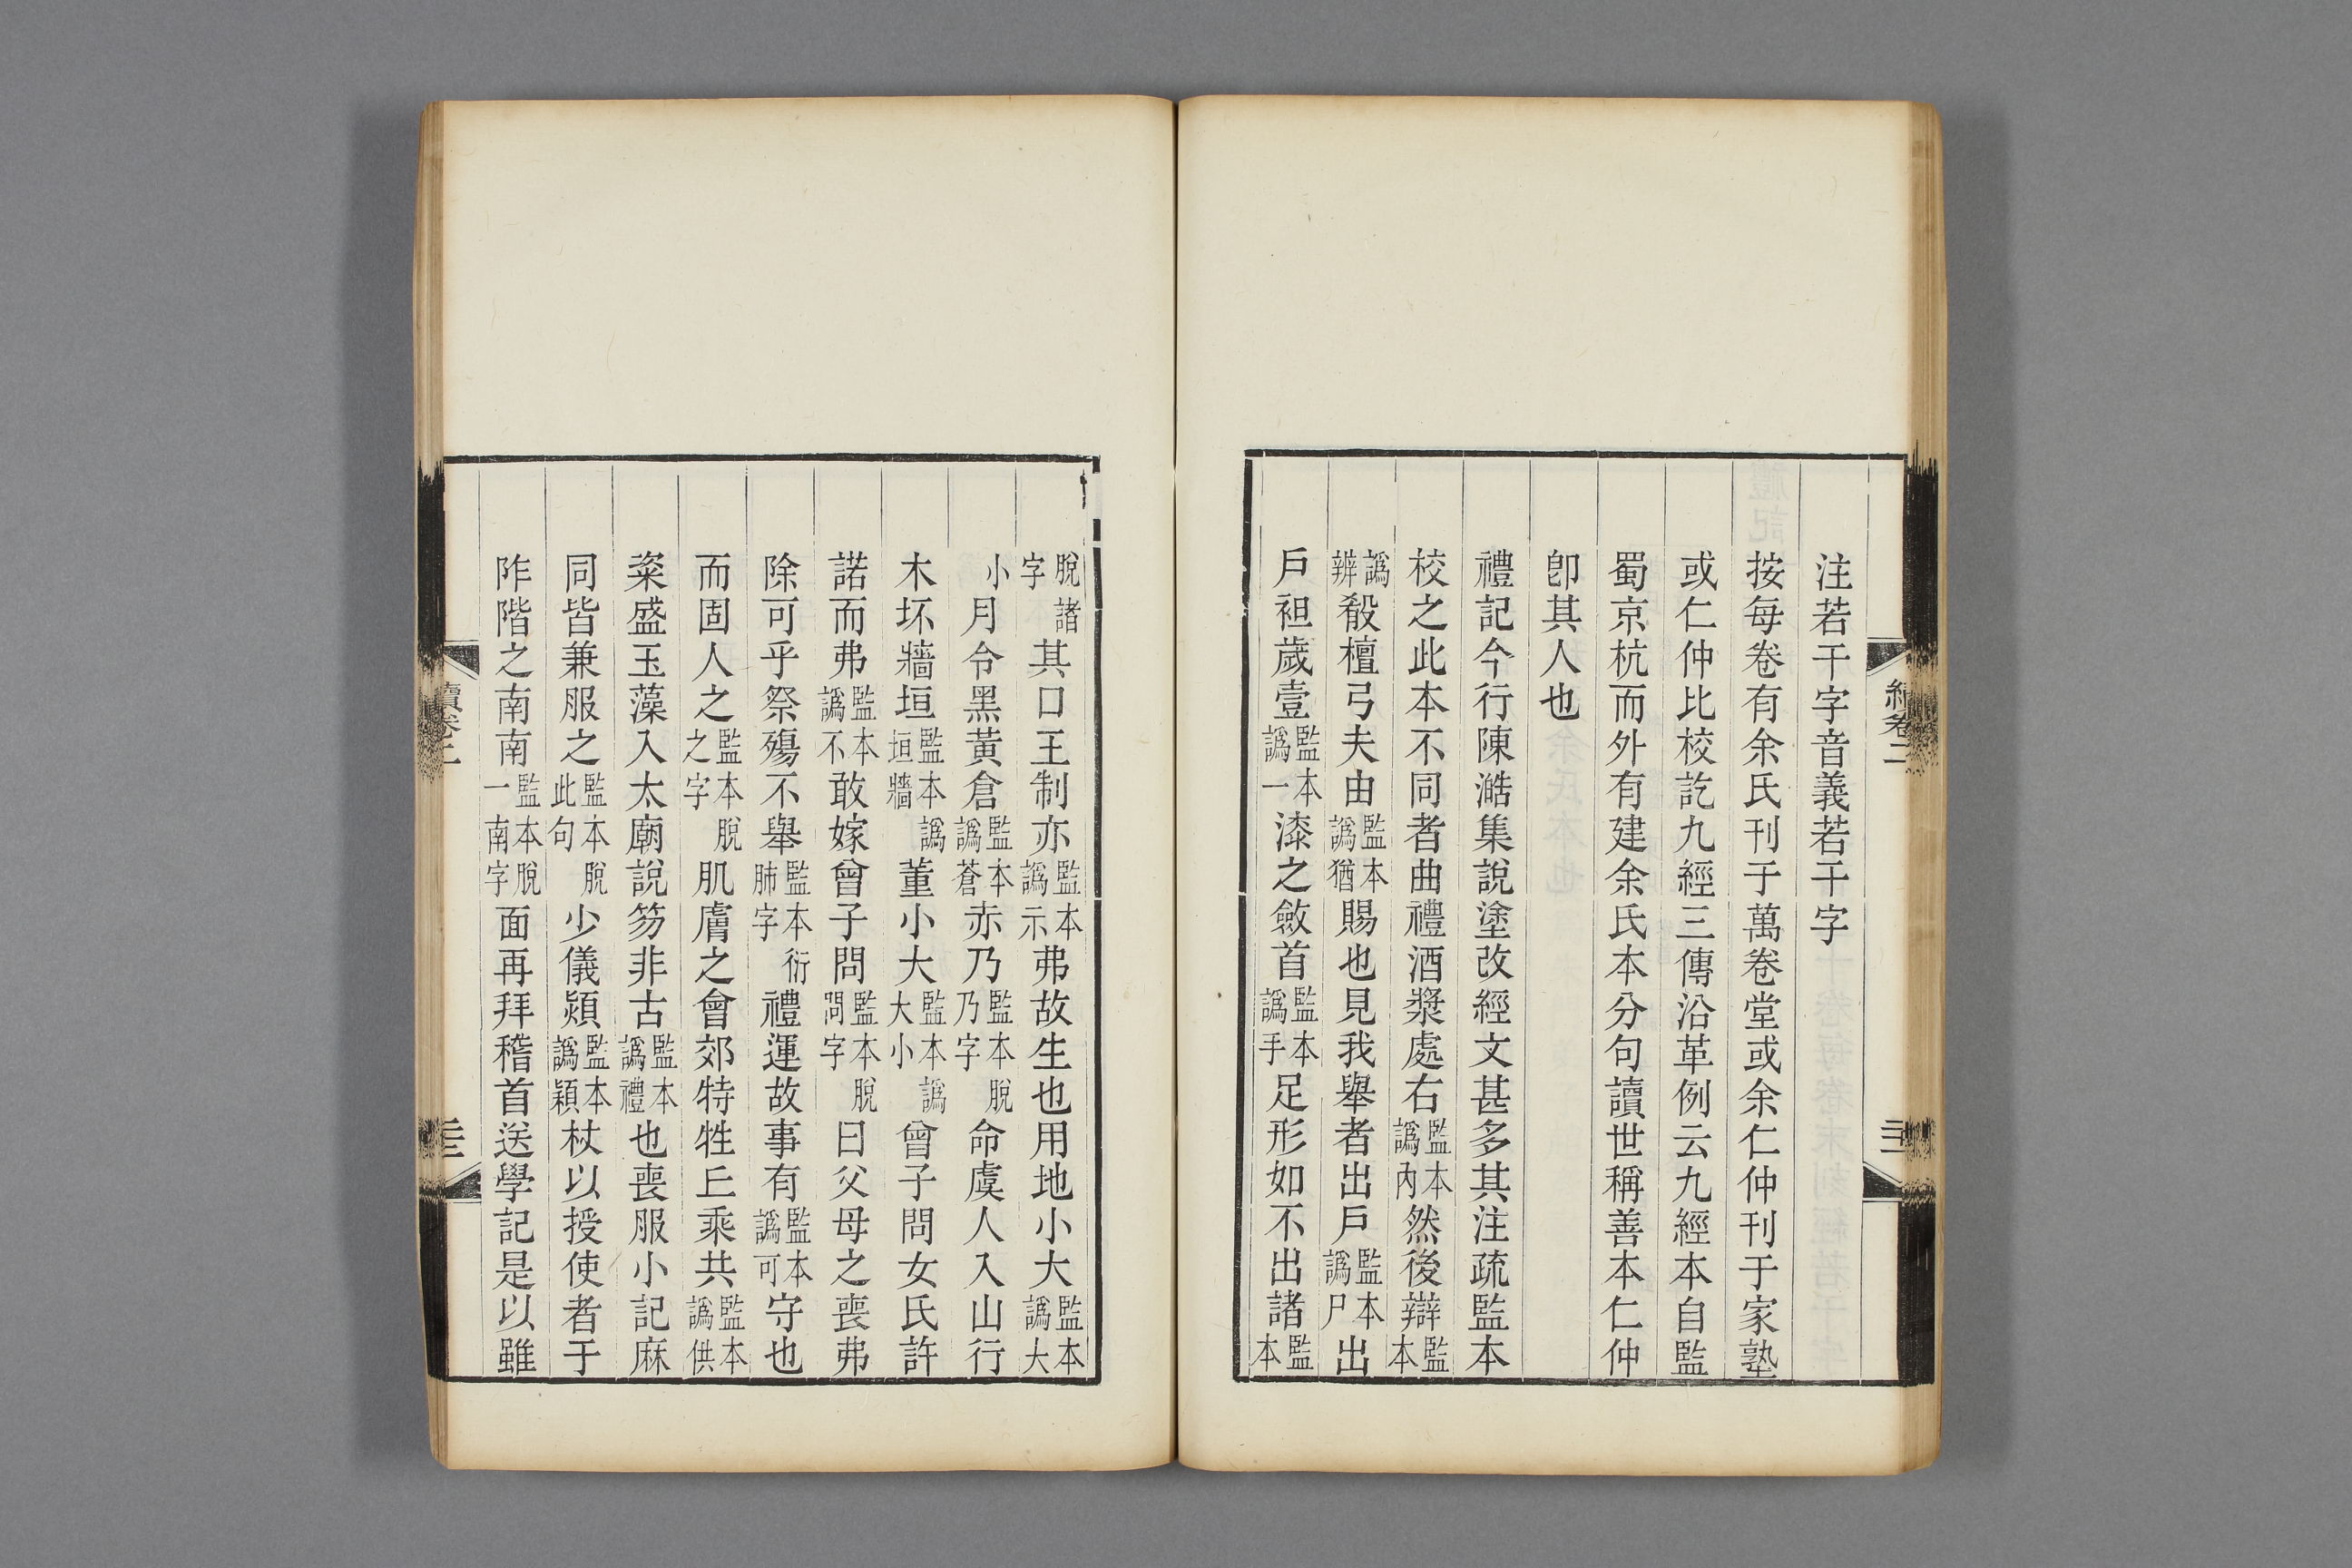 注若干字音義若干字
按每卷有余氏刊于萬卷堂或余仁仲刊于家塾
或仁仲比校訖九經三傳沿革例云九經本自監
蜀京杭而外有建余氏本分句讀世稱善本仁仲
卽其人也
禮記今行陳澔集說塗改經文甚多其注疏監本
校之此本不同者曲禮酒漿處右監本譌內然後辯監本
譌辨殽檀弓夫由監本譌猶賜也見我舉者出戶監本譌尸出
戶袒歲壹監本譌一漆之斂首監本譌手足形如不出諸監本
脫諸字其口王制亦監本譌示弗故生也用地小大監本譌大
小月令黑黃倉監本譌蒼赤乃監本脫乃字命虞人入山行
木坏牆垣監本譌垣牆董小大監本譌大小曾子問女氏許
諾而弗監本譌不敢嫁曾子問監本脫問字曰父母之喪弗
除可乎祭殤不舉監本衍肺字禮運故事有監本譌可守也
而固人之監本脫之字肌膚之會郊特牲丘乘共監本譌供
粢盛玉藻入太廟說笏非古監本譌禮也喪服小記麻
同皆兼服之監本脫此句少儀熲監本譌穎杖以授使者于
阼階之南南監本脫一南字面再拜稽首送學記是以雖